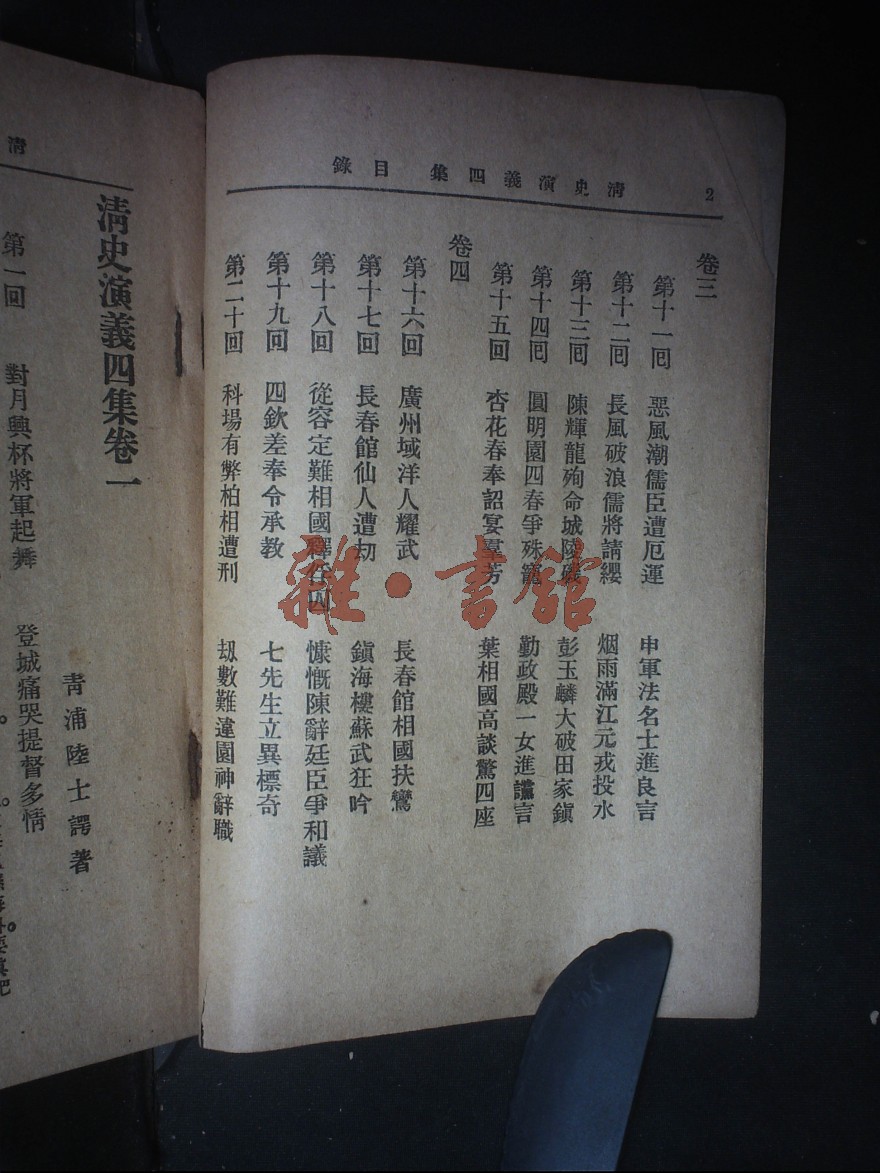 2 清史演義四集 目錄
卷三
第十一囘 惡風潮儒臣遭厄運 申軍法名士進良言
第十二囘 長風破浪儒將請纓 烟雨滿江元戎投水
第十三囘 陳輝龍殉命城陵磯 彭玉麟大破田家鎭
第十四囘 圓明園四春爭殊寵 勤政殿一女進讜言
第十五囘 杏花春奉詔宴羣芳 葉相國高談驚四座
卷四
第十六囘 廣州域洋人耀武 長春館相國扶鸞
第十七囘 長春館仙人遭刧 鎭海樓蘇武狂吟
第十八囘 從容定難相國釋仔囚 慷慨陳辭廷臣爭和議
第十九囘 四欽差奉令承教 七先生立異標奇
第二十囘 科場有弊柏相遭刑 刼數難違園神辭職
雜·書館
清
清史演義四集卷一
靑浦陸士諤著
第一回 對月興杯將軍起舞 登城痛哭提督多情